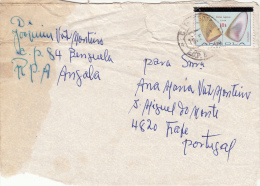 De
Joaquim Vaz Monteiro
C. P. 84 Benguela
R P A Angola
para Sra
Ana Maria Vaz Monteiro
S Miguel do Monte
4820 Fafe
Portugal